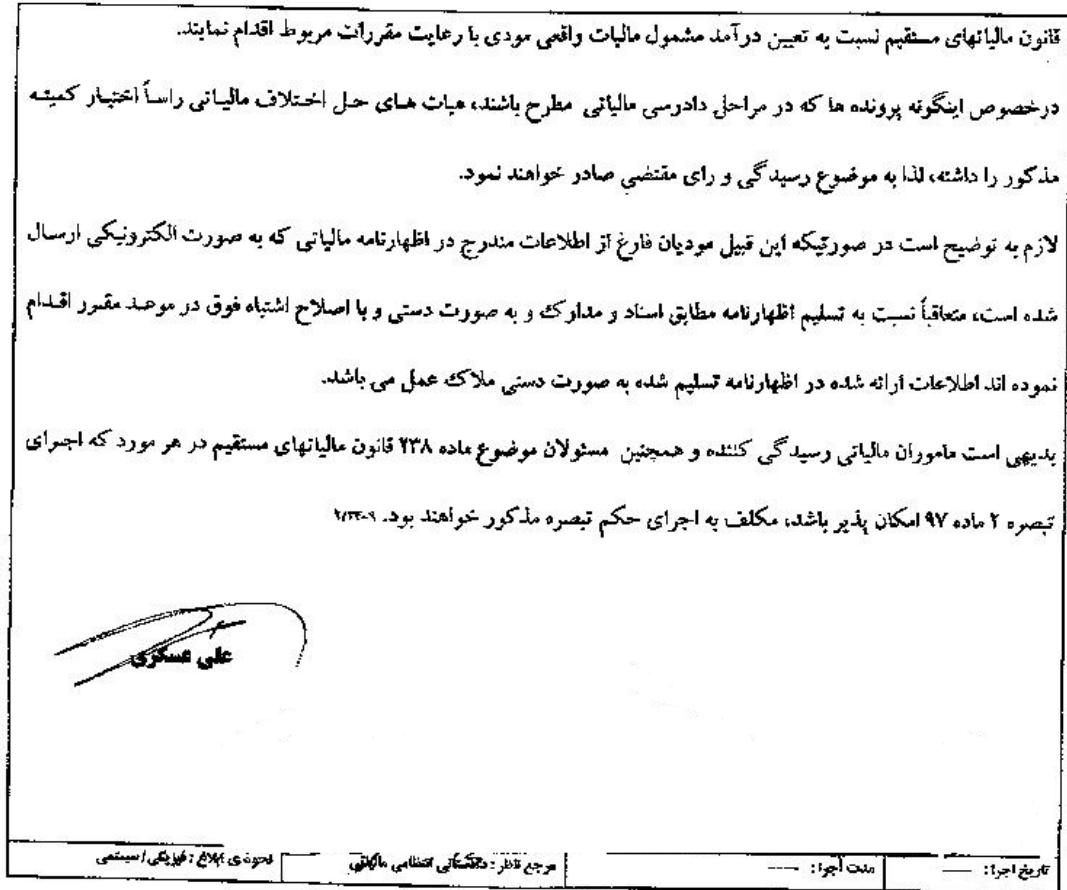 قانون مالیاتهای مستقیم نسبت به تعیین درآمد مشمول مالیات واقعی مودی با رعایت مقررات مربوط اقدام نمایند.
درخصوص اینگونه پرونده ها که در مراحل دادرسی مالیاتی مطرح باشند، هیات های حل اختلاف مالیاتی راساً اختیار کمیته
مذکور را داشته، لذا به موضوع رسیدگی و رای مقتضی صادر خواهند نمود.
لازم به توضیح است در صورتیکه این قبیل مودیان فارغ از اطلاعات مندرج در اظهارنامه مالیاتی که به صورت الکترونیکی ارسال
شده است، متعاقباً نسبت به تسلیم اظهارنامه مطابق اسناد و مدارک و به صورت دستی و با اصلاح اشتباه فوق در موعد مقرر اقدام
نموده اند اطلاعات ارائه شده در اظهارنامه تسلیم شده به صورت دستی ملاک عمل می باشد.
بدیهی است ماموران مالیاتی رسیدگی کننده و همچنین مسئولان موضوع ماده ۲۳۸ قانون مالیاتهای مستقیم در هر مورد که اجرای
تبصره ۲ ماده ۹۷ امکان پذیر باشد، مکلف به اجرای حکم تبصره مذکور خواهند بود.
علی عسکری
تاریخ اجرا: ---- مدت اجرا: ---- مرجع ناظر: دادستانی انتظامی مالیاتی نحوه ی ابلاغ: فیزیکی/سیستمی